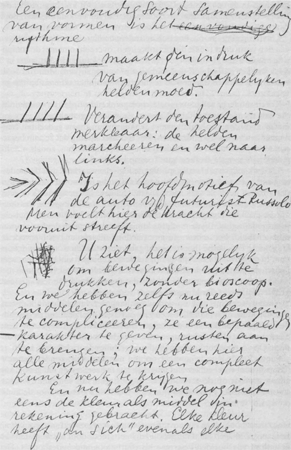 een eenvoudig soort samenstelling
van vormen is het eenvoudige
rythme
maakt g'en indruk
van gemeenschappelijken
heldenmoed.
Verandert den toestand
merkbaar: de helden
marcheeren en wel naar
links.
Is het hoofdmotief van
de auto v/d futurist Russolo
Men voelt hier de kracht die
vooruit streeft.
U ziet, het is mogelijk
om bewegingen uit te
drukken, zonder bioscoop.
En we hebben zelfs nu reeds
middelen genoeg om die bewegingen
te compliceeren, ze een bepaald
karakter te geven, rusten aan
te brengen; we hebben hier
alle middelen om een compleet
kunstwerk te krijgen
En nu hebben we nog niet
eens de kleur als middel in
rekening gebracht. Elke kleur
heeft "an sich" evenals elke